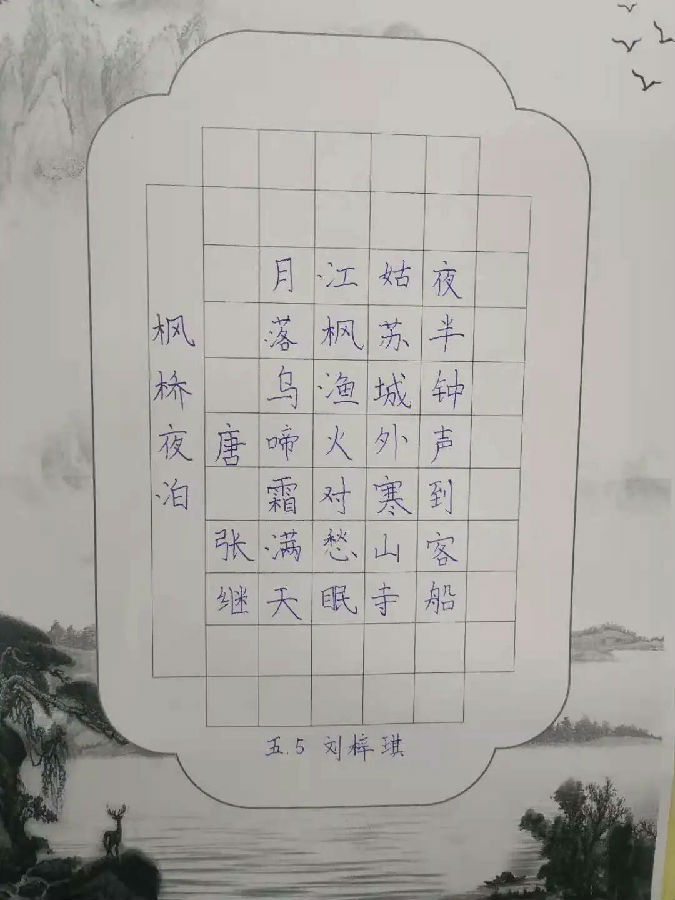 枫桥夜泊
唐 张继
月落乌啼霜满天
江枫渔火对愁眠
姑苏城外寒山寺
夜半钟声到客船
五.5 刘梓琪